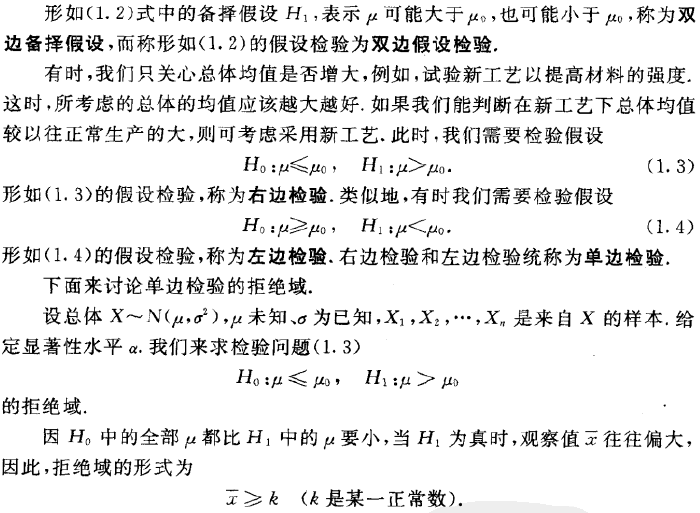 形如(1.2)式中的备择假设 H₁,表示 μ 可能大于 μ₀,也可能小于 μ₀,称为双
边备择假设,而称形如(1.2)的假设检验为双边假设检验.
有时,我们只关心总体均值是否增大,例如,试验新工艺以提高材料的强度.
这时,所考虑的总体的均值应该越大越好.如果我们能判断在新工艺下总体均值
较以往正常生产的大,则可考虑采用新工艺.此时,我们需要检验假设
H₀:μ≤μ₀, H₁:μ>μ₀. (1.3)
形如(1.3)的假设检验,称为右边检验.类似地,有时我们需要检验假设
H₀:μ≥μ₀, H₁:μ<μ₀. (1.4)
形如(1.4)的假设检验,称为左边检验.右边检验和左边检验统称为单边检验.
下面来讨论单边检验的拒绝域.
设总体 X~N(μ,σ²),μ 未知、σ 为已知,X₁,X₂,…,Xₙ 是来自 X 的样本.给
定显著性水平 α.我们来求检验问题(1.3)
H₀:μ≤μ₀, H₁:μ>μ₀
的拒绝域.
因 H₀ 中的全部 μ 都比 H₁ 中的 μ 要小,当 H₁ 为真时,观察值 x̄ 往往偏大,
因此,拒绝域的形式为
x̄≥k (k 是某一正常数).